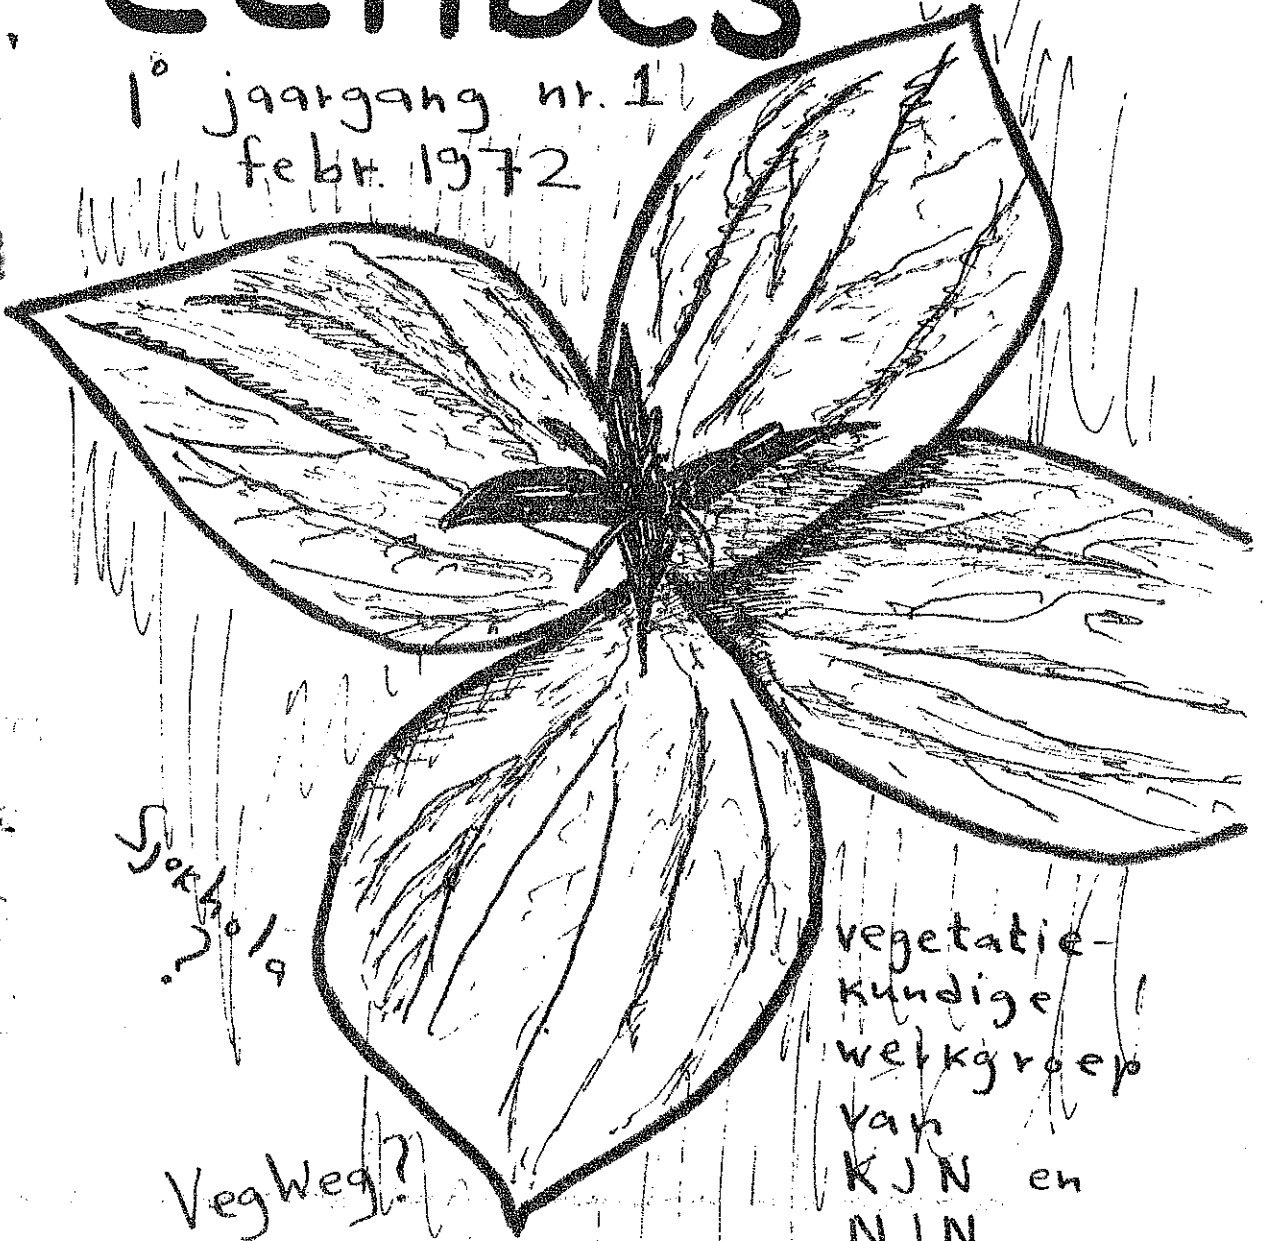 eenbes
1° jaargang nr. 1
febr. 1972
Sjokhola
?
vegetatie-
kundige
werkgroep
van
KJN en
NJN
VegWeg?